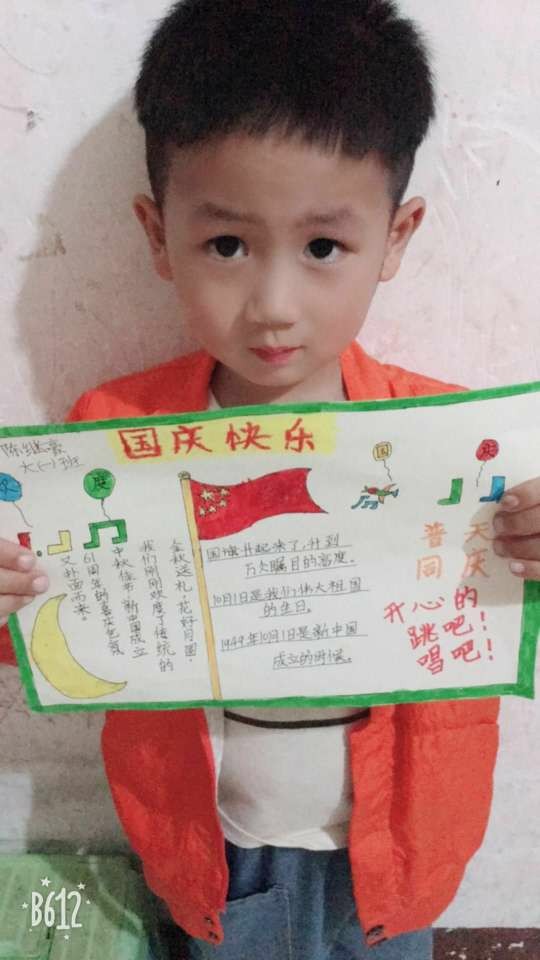 国庆快乐
陈继豪
大(一)班
欢
度
国
庆
金秋送礼,花好月圆,
我们刚刚欢度了传统的
中秋佳节,新中国成立
61周年的喜庆气氛
又扑面而来。
国旗升起来了,升到
万众瞩目的高度。
10月1日是我们伟大祖国
的生日。
1949年10月1日是新中国
成立的时候。
普天
同庆
开心的
跳吧!
唱吧!
B612